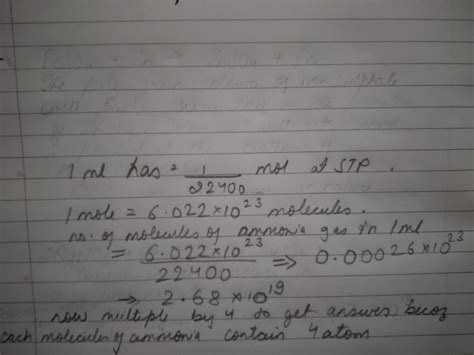 1 ml has = 1/22400 mol at STP.
1 mole = 6.022×10^23 molecules.
no. of molecules of ammonia gas in 1 ml
= 6.022×10^23/22400 ⇒ 0.00026×10^23
→ 2.68×10^19
now multiple by 4 to get answer becoz
each molecules of ammonia contain 4 atom